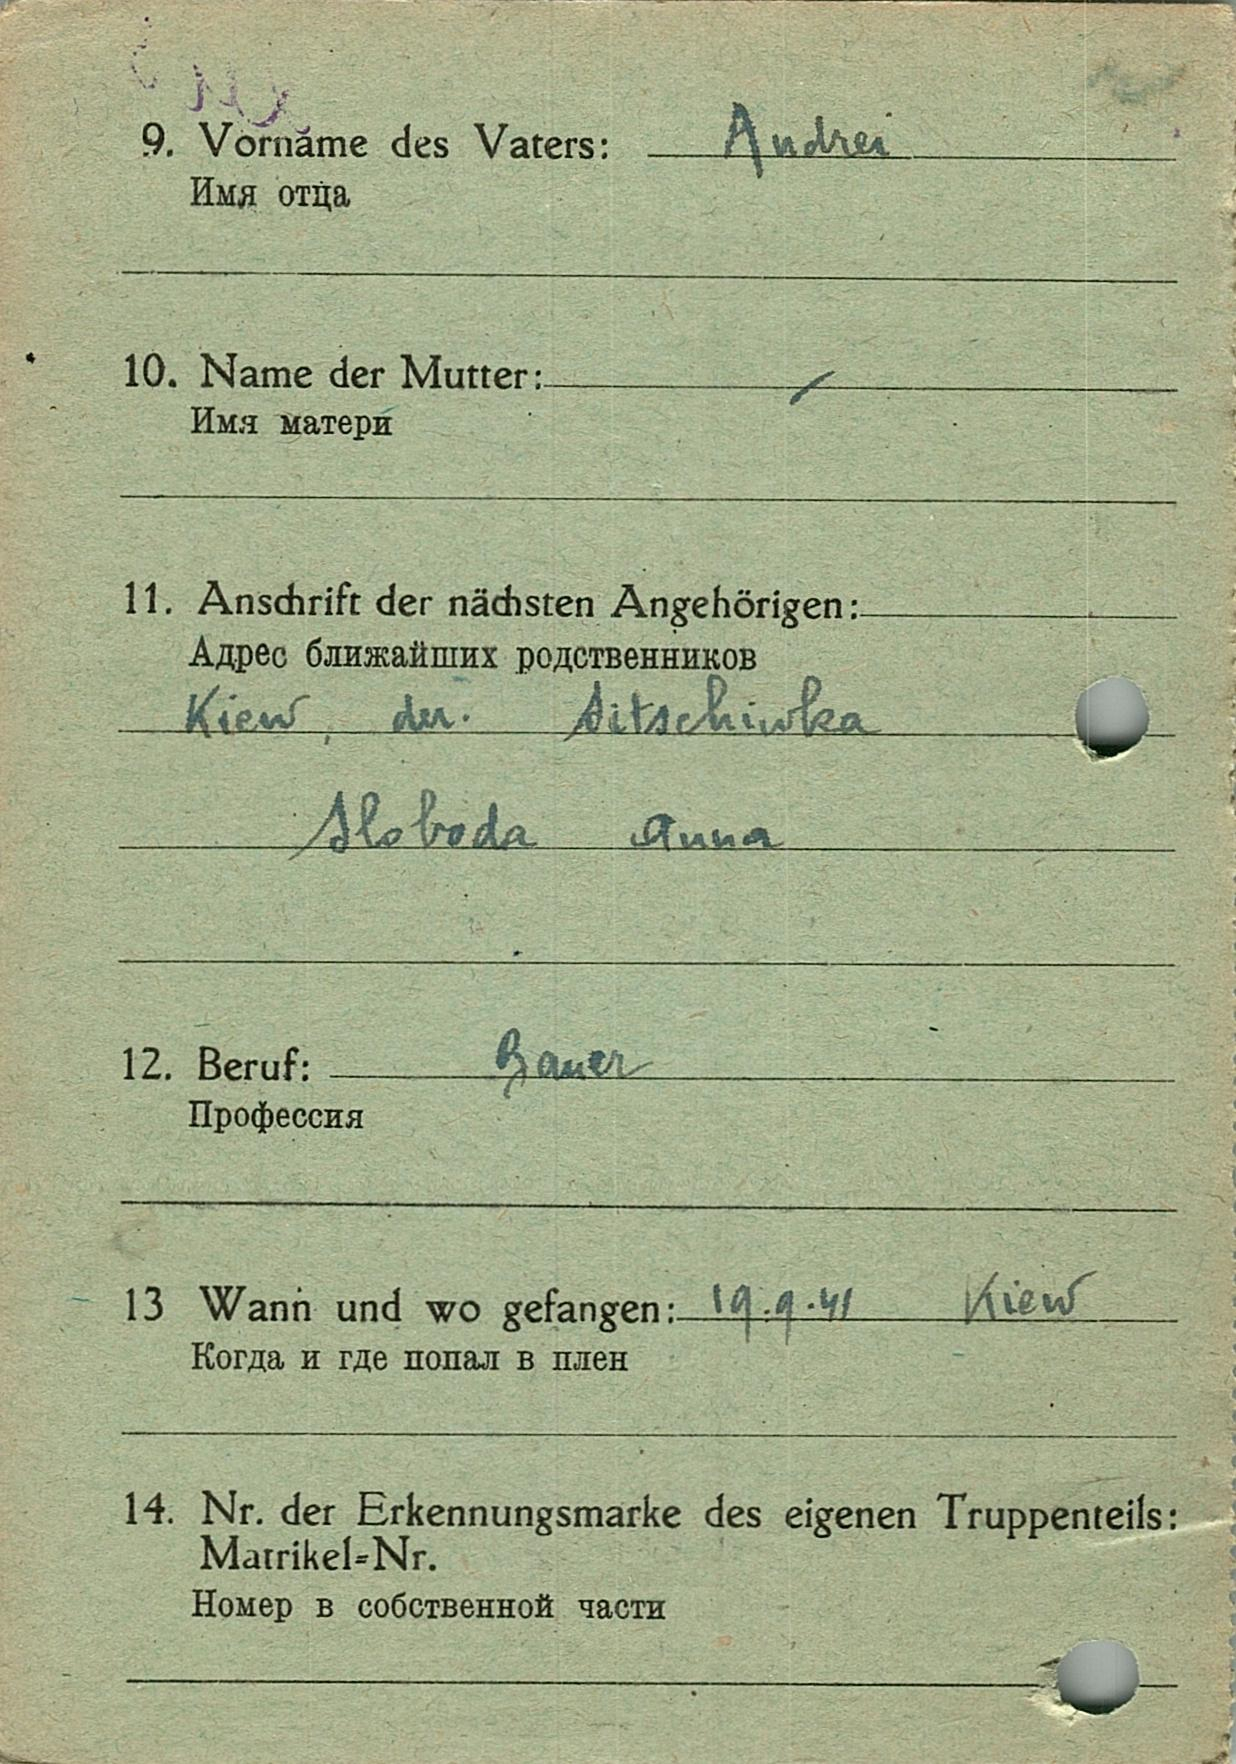 9. Vorname des Vaters: Andrei
Имя отца
10. Name der Mutter: /
Имя матери
11. Anschrift der nächsten Angehörigen:
Адрес ближайших родственников
Kiew, der. Sitschiwka
Sloboda Anna
12. Beruf: Bauer
Профессия
13 Wann und wo gefangen: 19.9.41 Kiew
Когда и где попал в плен
14. Nr. der Erkennungsmarke des eigenen Truppenteils:
Matrikel-Nr.
Номер в собственной части